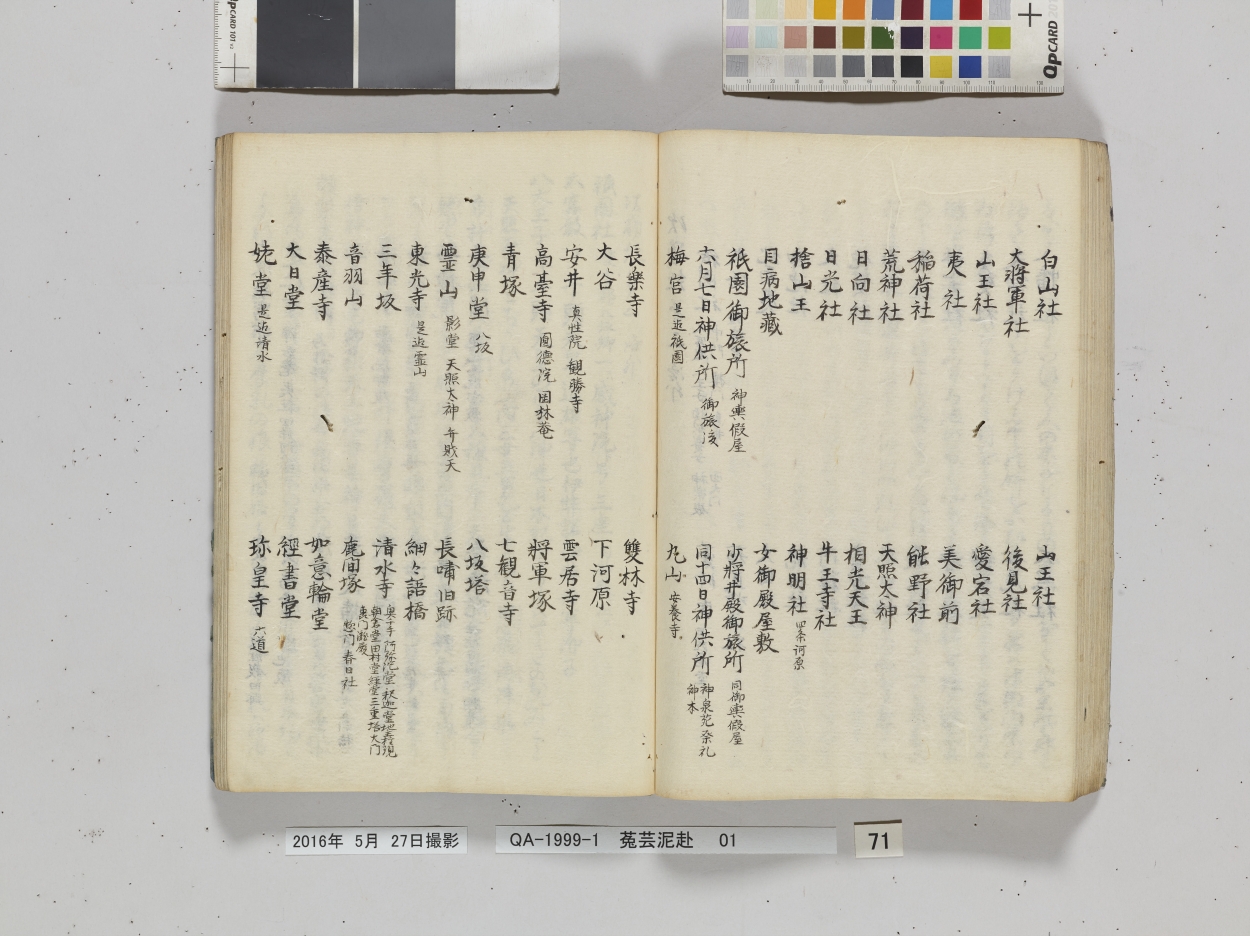 白山社
大將軍社
山王社
夷社
稲荷社
荒神社
日向社
日光社
捨山王
目病地藏
祇園御旅所 神輿假屋
六月七日神供所 御旅
梅宮 是迄祇園
山王社
後見社
愛宕社
美御前
熊野社
天照太神
相光天王
牛王寺社
神明社 四条河原
女御殿屋敷
少將井殿御旅所 同御輿假屋
同十四日神供所 神泉苑祭礼 神木
丸山 安養寺
長樂寺
大谷
安井 真性院 観勝寺
高臺寺 圓徳院 岡林菴
青塚
庚申堂 八坂
霊山 影堂 天照太神 弁戝天
東光寺 是迄霊山
三年坂
音羽山
泰産寺
大日堂
姥堂 是迄清水
雙林寺
下河原
雲居寺
將軍塚
七観音寺
八坂塔
長嘯旧跡
細々語橋
清水寺 奥千手 阿弥陀堂 釈迦堂 地主権現
朝倉堂 田村堂 経堂 三重塔 大門
惣門 春日社
鹿间塚
如意輪堂
經書堂
珎皇寺 六道
2016年 5月 27日撮影
QA-1999-1 菟芸泥赴 01
71
QpCARD 101 v3
QpCARD 201